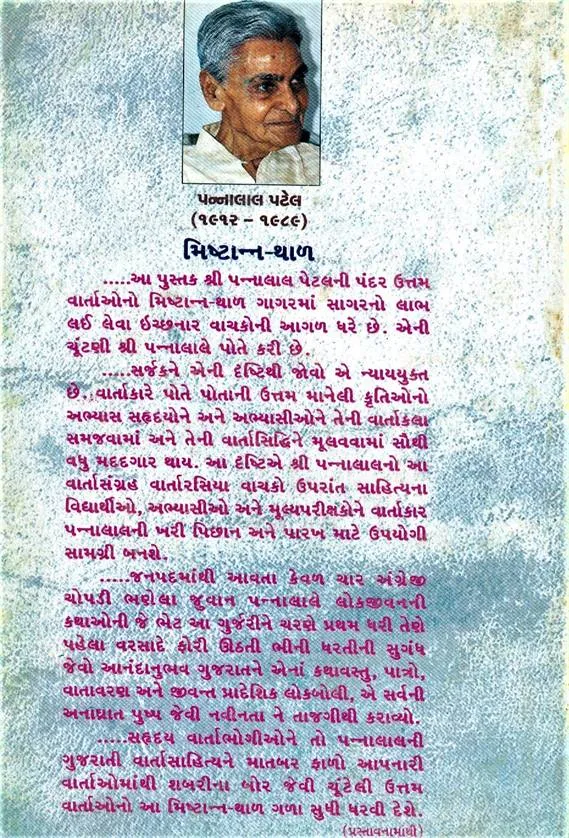 પન્નાલાલ પટેલ
(૧૯૧૨ – ૧૯૮૯)
મિષ્ટાન્ન-થાળ
.....આ પુસ્તક શ્રી પન્નાલાલ પેટલની પંદર ઉત્તમ
વાર્તાઓનો મિષ્ટાન્ન-થાળ ગાગરમાં સાગરનો લાભ
લઈ લેવા ઇચ્છનાર વાચકોની આગળ ધરે છે. એની
ચૂંટણી શ્રી પન્નાલાલે પોતે કરી છે.
.....સર્જકને એની દૃષ્ટિથી જોવો એ ન્યાયયુક્ત
છે. વાર્તાકારે પોતે પોતાની ઉત્તમ માનેલી કૃતિઓનો
અભ્યાસ સહૃદયોને અને અભ્યાસીઓને તેની વાર્તાકલા
સમજવામાં અને તેની વાર્તાસિદ્ધિને મૂલવવામાં સૌથી
વધુ મદદગાર થાય. આ દૃષ્ટિએ શ્રી પન્નાલાલનો આ
વાર્તાસંગ્રહ વાર્તારસિયા વાચકો ઉપરાંત સાહિત્યના
વિદ્યાર્થીઓ, અભ્યાસીઓ અને મૂલ્યપરીક્ષકોને વાર્તાકાર
પન્નાલાલની ખરી પિછાન અને પારખ માટે ઉપયોગી
સામગ્રી બનશે.
.....જનપદમાંથી આવતા કેવળ ચાર અંગ્રેજી
ચોપડી ભણેલા જુવાન પન્નાલાલે લોકજીવનની
કથાઓની જે ભેટ આ ગુર્જરીને ચરણે પ્રથમ ધરી તેણે
પહેલા વરસાદે ફોરી ઊઠતી ભીની ધરતીની સુગંધ
જેવો આનંદાનુભવ ગુજરાતને એનાં કથાવસ્તુ, પાત્રો,
વાતાવરણ અને જીવન્ત પ્રાદેશિક લોકબોલી, એ સર્વની
અનાઘ્રાત પુષ્પ જેવી નવીનતા ને તાજગીથી કરાવ્યો.
.....સહૃદય વાર્તાભોગીઓને તો પન્નાલાલની
ગુજરાતી વાર્તાસાહિત્યને માતબર ફાળો આપનારી
વાર્તાઓમાંથી શબરીના બોર જેવી ચૂંટેલી ઉત્તમ
વાર્તાઓનો આ મિષ્ટાન્ન-થાળ ગળા સુધી ધરવી દેશે.
(પ્રસ્તાવનામાંથી)